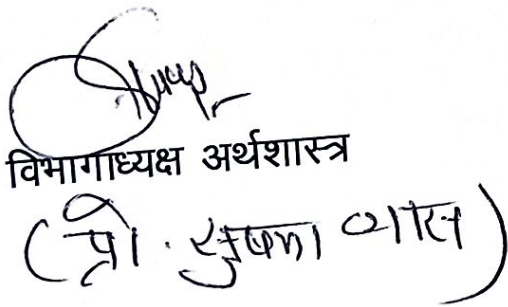 विभागाध्यक्ष अर्थशास्त्र
(प्रो. सुषमा व्यास)